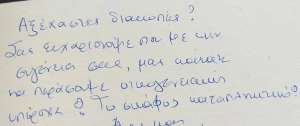 Αξέχαστες διακοπές?
Σας ευχαριστούμε που με την
ευγένεια σας, μας κάνατε
να περάσουμε οικογενειακή
υπέροχα? Το σκάφος καταπληκτικό?